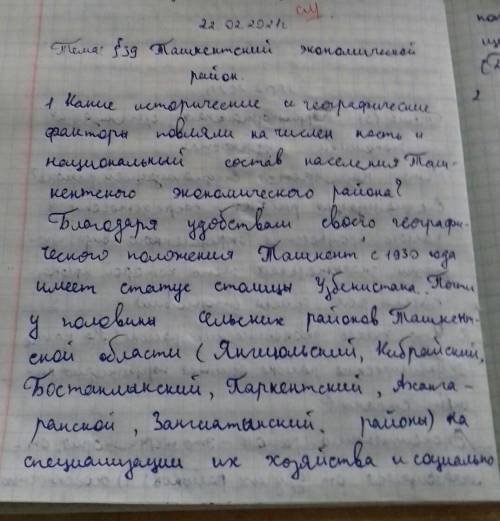 см
22.02.2021г
Тема: §39 Ташкентский экономической
район.
1 Какие исторические и географические
факторы повляли на числен ность и
национальный состав населения Таш-
кентского экономического района?
Благодаря удобствам своего географи-
ческого положения Ташкент с 1930 года
имеет статус столицы Узбенистана. Почти
у половины сельских районов Ташкент-
ской области (Янгиюльский, Кибрайский,
Бостанлыкский, Паркентский, Аханга-
ранской, Зангиатынский. районы) на
специализации их хозяйства и социально
по
2